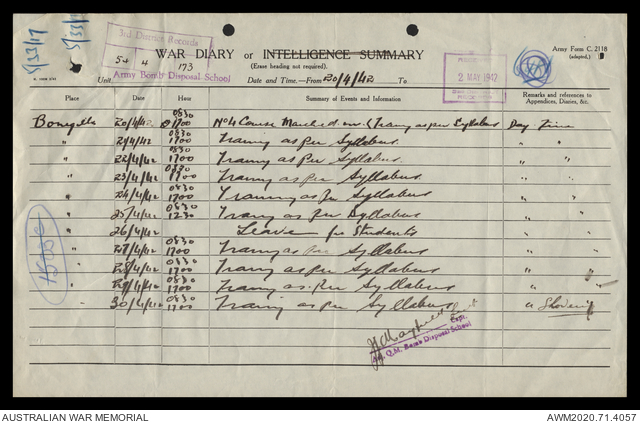 5/33/17
5/33/17
3rd District Records
54 4 173
Army Bomb Disposal School
WAR DIARY or INTELLIGENCE SUMMARY
(Erase heading not required).
Army Form C. 2118
(adapted.)
2 MAY 1942
Unit
Date and Time.—From 20/4/42 To
Place Date Hour Summary of Events and Information Remarks and references to Appendices, Diaries, &c.
Bonegilla 20/4/42 0830 1700 No 4 Course Marched in. Traing as per Syllabus Day Fine
" 21/4/42 0830 1700 Traing as per Syllabus. " "
" 22/4/42 0830 1700 Traing as per Syllabus. " "
" 23/4/42 0830 1700 Traing as per Syllabus. " "
" 24/4/42 0830 1700 Traing as per Syllabus " "
" 25/4/42 0830 1230 Traing as per Syllabus " "
" 26/4/42 Leave for Students " "
" 27/4/42 0830 1700 Traing as per Syllabus " "
" 28/4/42 0830 1700 Traing as per Syllabus " "
" 29/4/42 0830 1700 Traing as per Syllabus " "
" 30/4/42 0830 1700 Traing as per Syllabus " Showery
Capt.
Q.M. Bomb Disposal School
AUSTRALIAN WAR MEMORIAL
AWM2020.71.4057